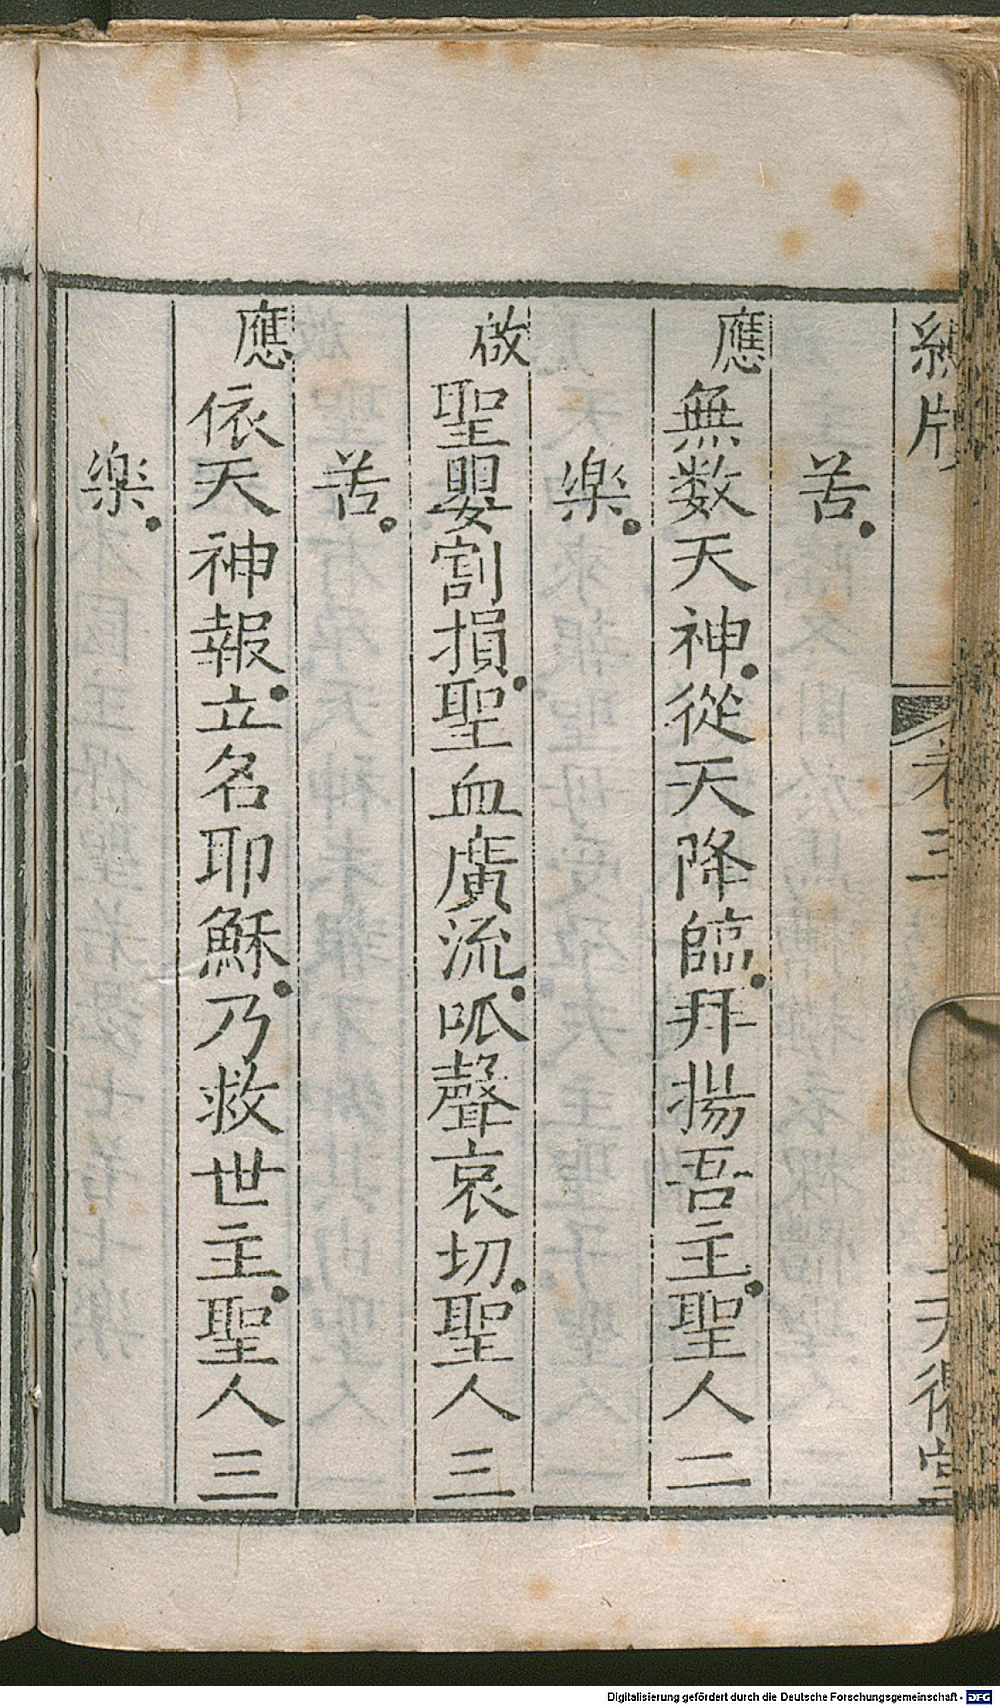 卷三
苦。
應無数天神。從天降臨。拜揚吾主。聖人二
樂。
啟聖嬰割損。聖血廣流。呱聲哀切。聖人三
苦。
應依天神報。立名耶穌。乃救世主。聖人三
樂。
Digitalisierung gefördert durch die Deutsche Forschungsgemeinschaft - DFG